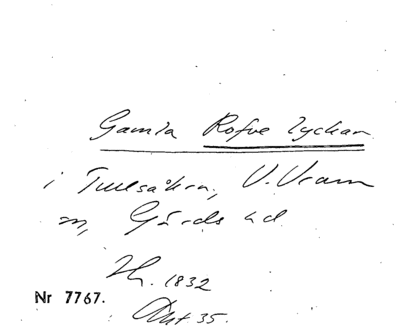 Gamla Rofve lyckan
i Tullsåkra, V. Vram
sn, Gärds hd
Lh. 1832
Akt 35.
Nr 7767.